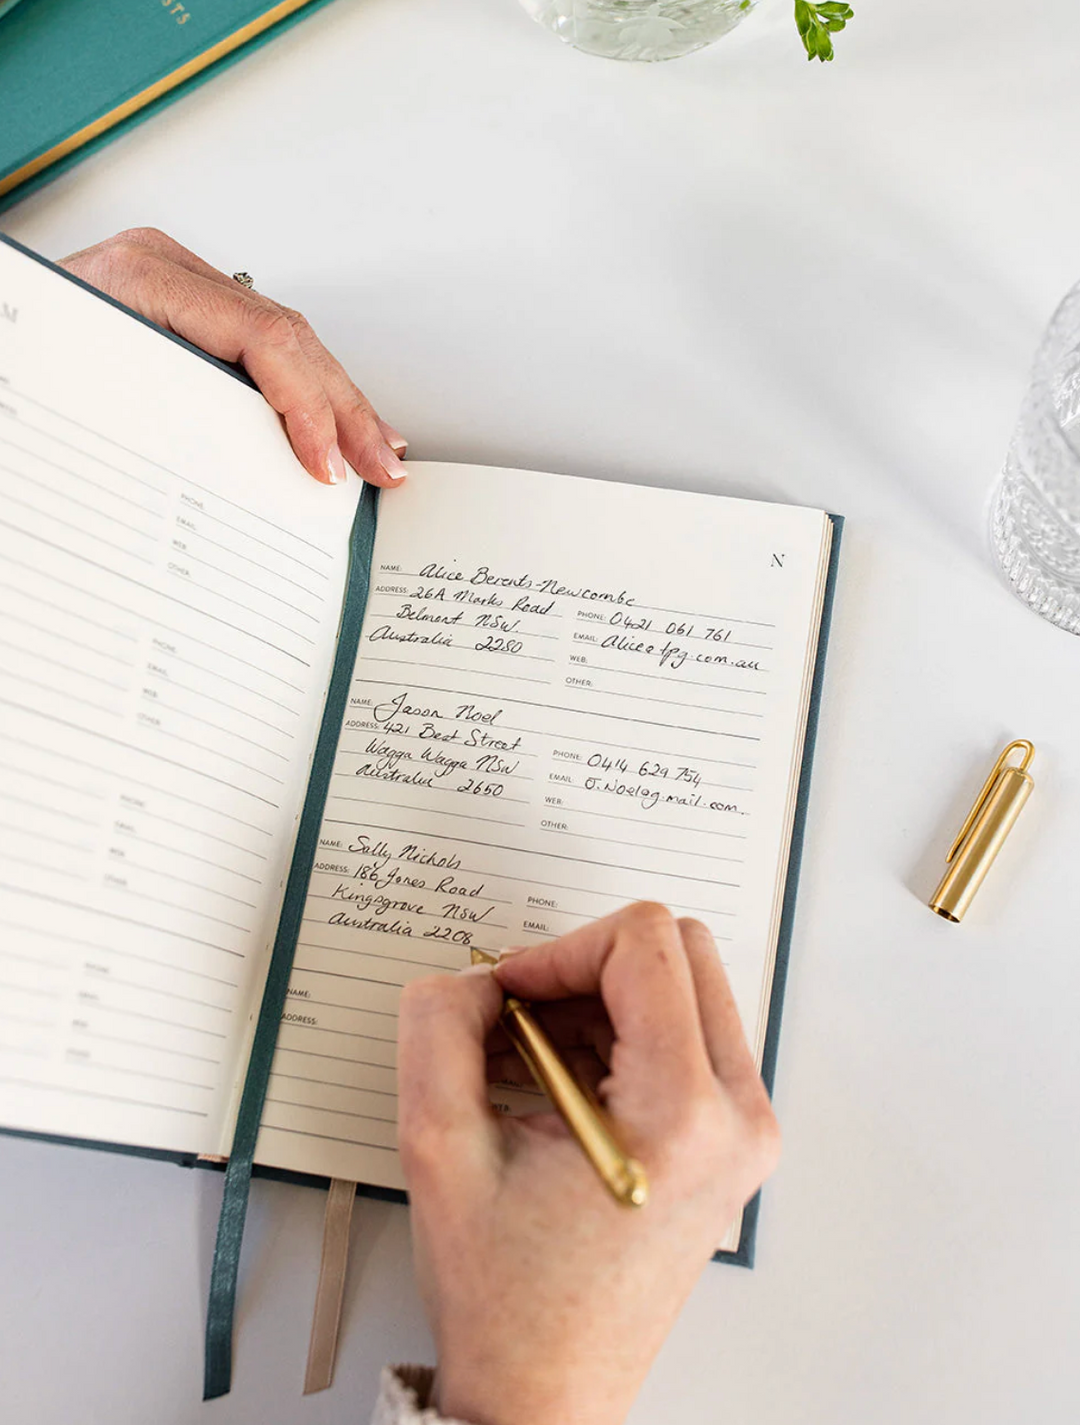 STS
M
PHONE:
EMAIL:
WEB:
OTHER:
PHONE:
EMAIL:
WEB:
OTHER:
PHONE:
EMAIL:
WEB:
OTHER:
PHONE:
N
NAME: Alice Berents-Newcombe
ADDRESS: 26A Marks Road
Belmont NSW.
Australia 2280
PHONE: 0421 061 761
EMAIL: Alice@tpg.com.au
WEB:
OTHER:
NAME: Jason Noel
ADDRESS: 421 Best Street
Wagga Wagga NSW
Australia 2650
PHONE: 0414 629 754
EMAIL: J.Noel@g.mail.com.
WEB:
OTHER:
NAME: Sally Nichols
ADDRESS: 186 Jones Road
Kingsgrove NSW
Australia 2208
PHONE:
EMAIL:
NAME:
ADDRESS:
EMAIL:
WEB: